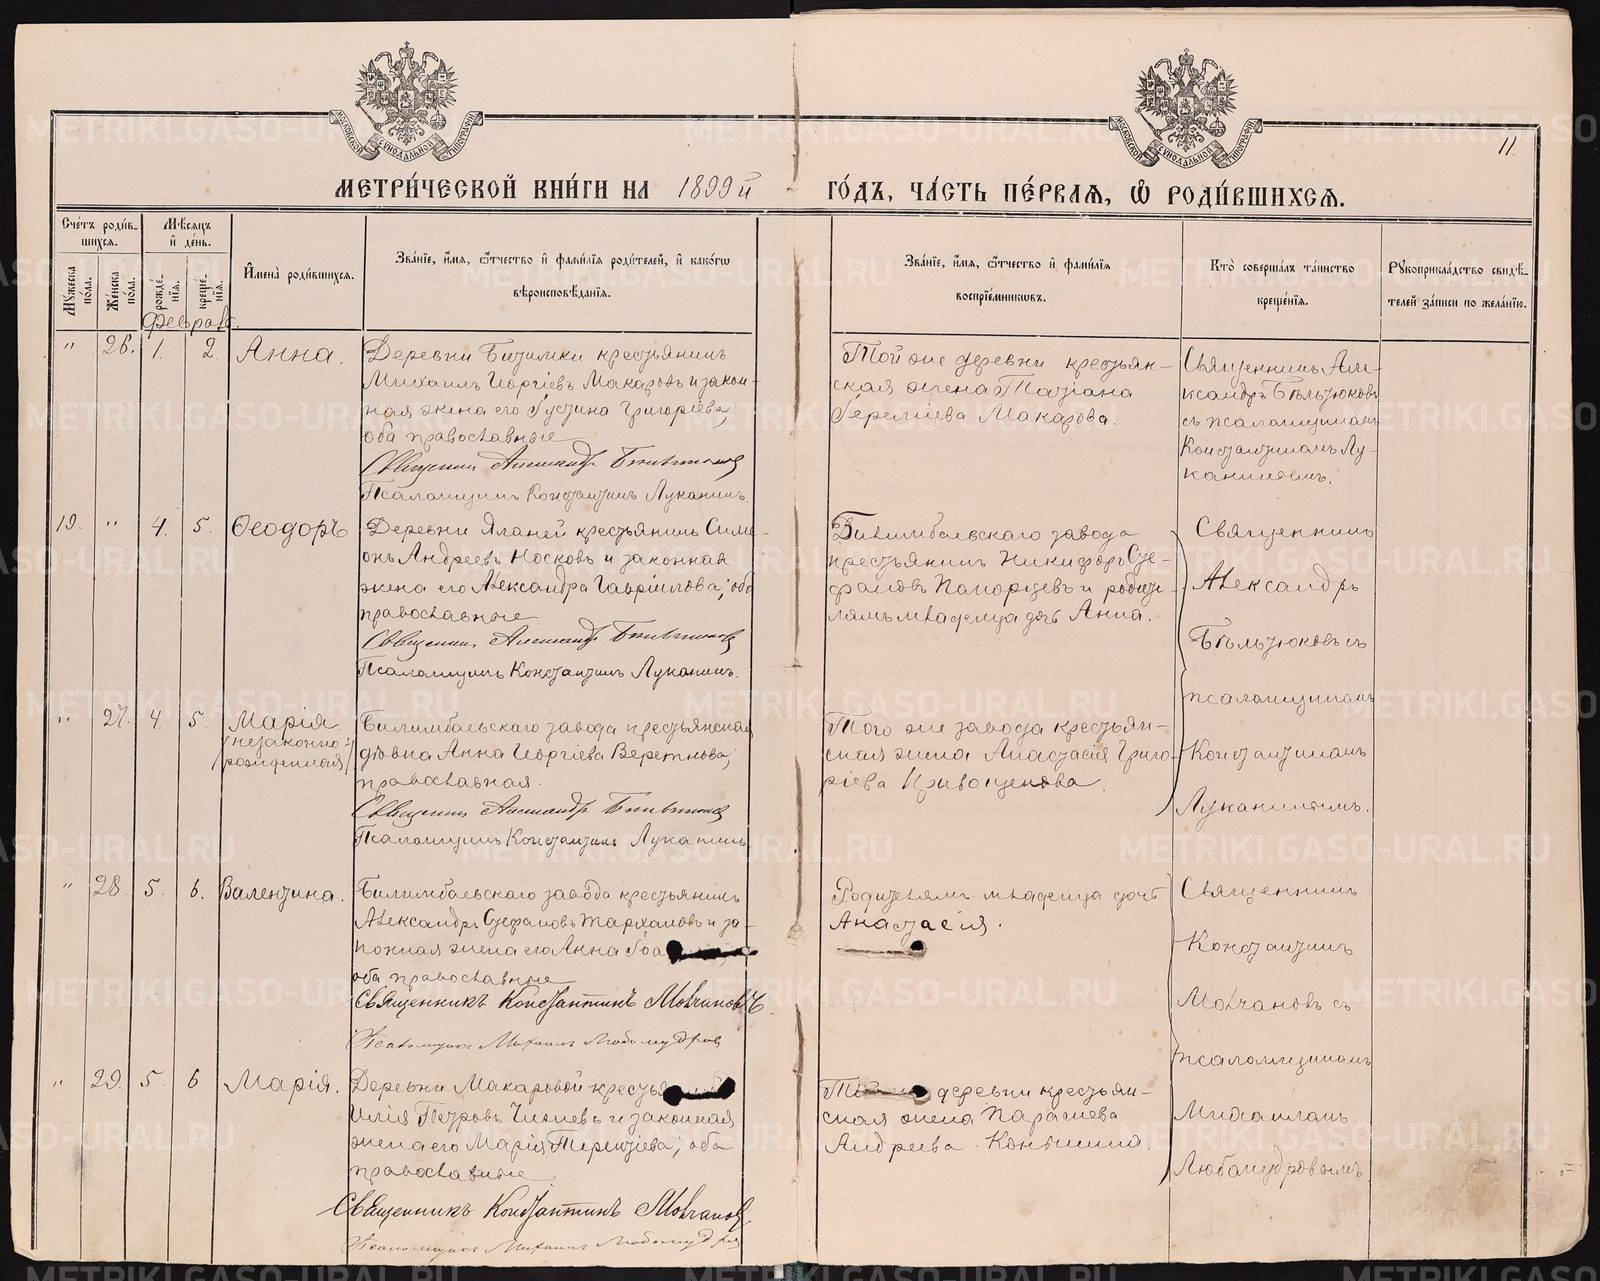 МЕТРИ́ЧЕСКОЙ КНИ́ГИ НА 1899й ГО́ДЪ, ЧА́СТЬ ПЕ́РВАѦ, Ѽ РОДИ́ВШИХСѦ.
11.
Сче́тъ роди́в-
шихсѧ.
Мѣ́сѧцъ
и҆ де́нь.
И҆мена̀ роди́вшихсѧ.
Зва́нїе, и҆́мѧ, ѻ҆́тчество и҆ фами́лїѧ роди́телей, и҆ како́гѡ
вѣроисповѣ́данїѧ.
Зва́нїе, и҆́мѧ, ѻ҆́тчество и҆ фами́лїѧ
воспрїе́мникѡвъ.
Кто̀ соверша́лъ та́инство
креще́нїѧ.
Рꙋкоприкла́дство свидѣ́-
телей за́писи по жела́нїю.
Мꙋ́жеска по́ла.
Же́нска по́ла.
рожде́-
нїѧ.
креще́-
нїѧ.
Февраль.
" 26. 1. 2. Анна.
Деревни Битимки крестьянинъ
Михаилъ Георгіевъ Макаровъ и закон-
ная жена его Густина Григоріева,
оба православные
Священникъ Александръ
Псаломщикъ Константинъ Луканинъ.
Той же деревни крестьян-
ская жена Татіана
Макарова.
Священникъ Але-
ксандръ Бѣльтюковъ
съ псаломщикомъ
Константиномъ Лу-
канинымъ.
19. " 4. 5. Ѳеодоръ
Деревни Яланей крестьянинъ Симе-
онъ Андреевъ Носковъ и законная
жена его Александра Гавріилова; оба
православные.
Священникъ Александръ
Псаломщикъ Константинъ Луканинъ.
Билимбаевскаго завода
крестьянинъ Никифоръ Сте-
фановъ и родите-
лямъ младенца дочь Анна.
Священникъ
Александръ
Бѣльтюковъ съ
псаломщикомъ
Константиномъ
Луканинымъ.
" 27. 4. 5. Марія
(незаконно-
рожденная)
Билимбаевскаго завода крестьянская
дѣвица Анна Георгіева Веретнова,
православная.
Священникъ Александръ
Псаломщикъ Константинъ Луканинъ
Того же завода крестьян-
ская жена Анастасія Григо-
ріева Кривощекова.
" 28. 5. 6. Валентина.
Билимбаевскаго завода крестьянинъ
Александръ Стефановъ Тархановъ и за-
конная жена его Анна
оба православные
Священникъ Константинъ Молчановъ
Псаломщикъ Михаилъ Любомудровъ
Родителямъ младенца дочь
Анастасія.
Священникъ
Константинъ
Молчановъ съ
псаломщикомъ
Михаиломъ
Любомудровымъ
" 29. 5. 6. Марія.
Деревни Макаровой
Илія Петровъ и законная
жена его Марія Терентіева; оба
православные
Священникъ Константинъ Молчановъ
Псаломщикъ Михаилъ Любомудровъ
деревни крестьян-
ская жена Параскева
Андреева Коньшина.